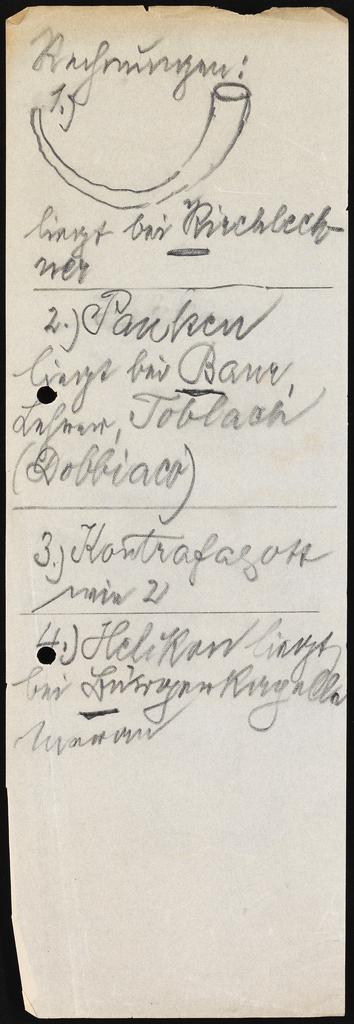 Rechnungen:
1.)
liegt bei Kirchlech-
ner
2.) Pauken
liegt bei Baur,
Lehrer, Toblach
(Dobbiaco)
3.) Kontrafagott
wie 2
4.) Helikon liegt
bei Bürgerkapelle
Meran